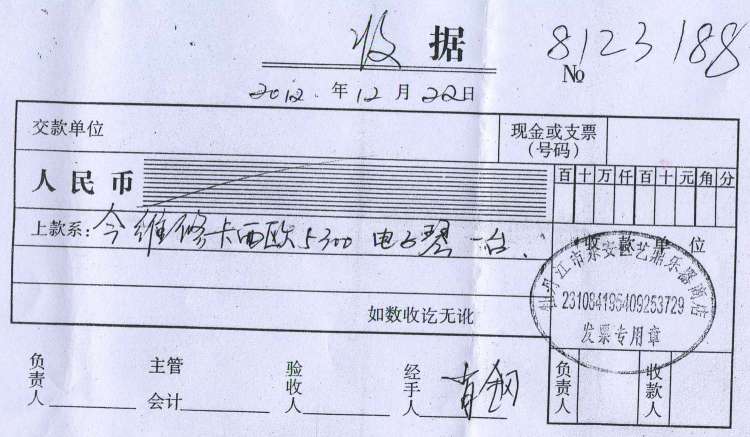 收 据
8123188
№
2012 年 12 月 22 日
交款单位 现金或支票(号码)
人民币 百 十 万 仟 百 十 元 角 分
上款系: 今维修卡西欧5300电子琴一台.
收款单位
牡丹江市东安区艺鼎乐器商店
231084195409253729
发票专用章
如数收讫无讹
负责人 主管会计 验收人 经手人 肖钢 负责人 收款人